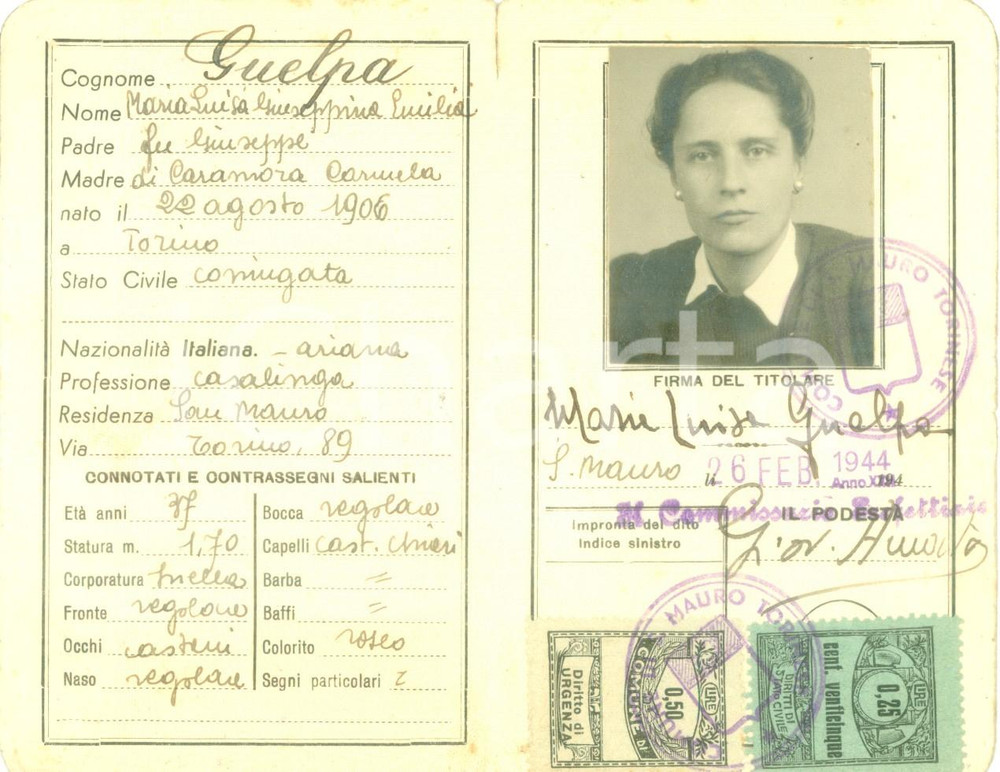 Cognome Guelpa
Nome Maria Luisa Giuseppina Emilia
Padre fu Giuseppe
Madre di Caramora Carmela
nato il 22 agosto 1906
a Torino
Stato Civile coniugata
Nazionalità Italiana. - ariana
Professione casalinga
Residenza San Mauro
Via Torino, 89
CONNOTATI E CONTRASSEGNI SALIENTI
Età anni 37
Statura m. 1,70
Corporatura snella
Fronte regolare
Occhi castani
Naso regolare
Bocca regolare
Capelli cast. chiari
Barba =
Baffi =
Colorito roseo
Segni particolari
MAURO TORINESE
FIRMA DEL TITOLARE
Maria Luisa Guelpa
S. Mauro li 26 FEB. 1944
Anno
194
Il Commissario Prefettizio
IL PODESTÀ
Impronta del dito
indice sinistro
MAURO
LIRE
0,50
COMUNE DI
Diritto di
URGENZA
LIRE
0,25
cent. venticinque
DIRITTI DI
STATO CIVILE